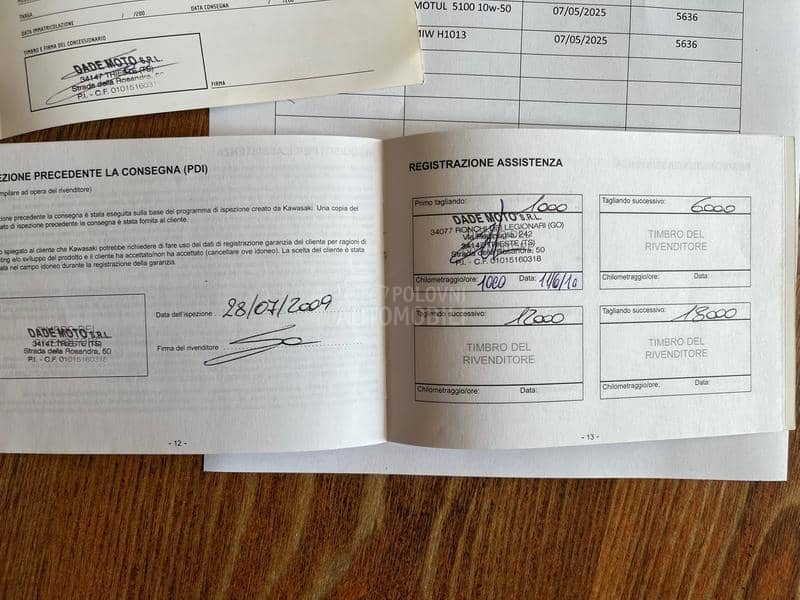 TARGA
/ /200
DATA CONSEGNA
/ /200
DATA IMMATRICOLAZIONE
TIMBRO E FIRMA DEL CONCESSIONARIO
DADE MOTO S.R.L.
34147 TRIESTE (TS)
Strada della Rosandra, 50
P.I. - C.F. 01015160318
FIRMA
MOTUL 5100 10w-50
07/05/2025
5636
HIW H1013
07/05/2025
5636
EZIONE PRECEDENTE LA CONSEGNA (PDI)
mpilare ad opera del rivenditore)
zione precedente la consegna è stata eseguita sulla base del programma di ispezione creato da Kawasaki. Una copia del
ato di ispezione precedente la consegna è stata fornita al cliente.
o spiegato al cliente che Kawasaki potrebbe richiedere di fare uso dei dati di registrazione garanzia del cliente per ragioni di
ting e/o sviluppo del prodotto e il cliente ha accettato/non ha accettato (cancellare ove idoneo). La scelta del cliente è stata
ata nel campo idoneo durante la registrazione della garanzia.
DADE MOTO S.R.L.
34147 TRIESTE (TS)
Strada della Rosandra, 50
P.I. - C.F. 01015160318
Data dell'ispezione 28/07/2009
Firma del rivenditore
- 12 -
REGISTRAZIONE ASSISTENZA
Primo tagliando: 1000
DADE MOTO S.R.L.
34077 RONCHI DEI LEGIONARI (GO)
34147 TRIESTE (TS)
Strada della Rosandra, 50
P.I. - C.F. 01015160318
Chilometraggio/ore: 1000 Data: 11/6/10
Tagliando successivo: 6000
TIMBRO DEL
RIVENDITORE
Chilometraggio/ore: Data:
POLOVNI
AUTOMOBILI
Tagliando successivo: 12000
TIMBRO DEL
RIVENDITORE
Chilometraggio/ore: Data:
Tagliando successivo: 18000
TIMBRO DEL
RIVENDITORE
Chilometraggio/ore: Data:
- 13 -